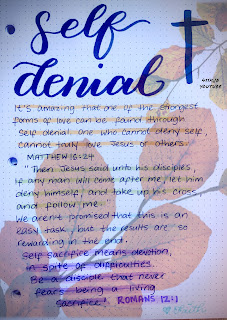 self
denial
It's amazing that one of the strongest
forms of love can be found through
self denial. One who cannot deny self,
cannot truly love Jesus or others.
MATTHEW 16:24
"Then Jesus said unto his disciples,
if any man will come after me, let him
deny himself, and take up his cross
and follow me."
We aren't promised that this is an
easy task, but the results are so
rewarding in the end.
Self sacrifice means devotion,
in spite of difficulties.
Be a disciple that never
fears being a living
sacrifice! ROMANS 12:1